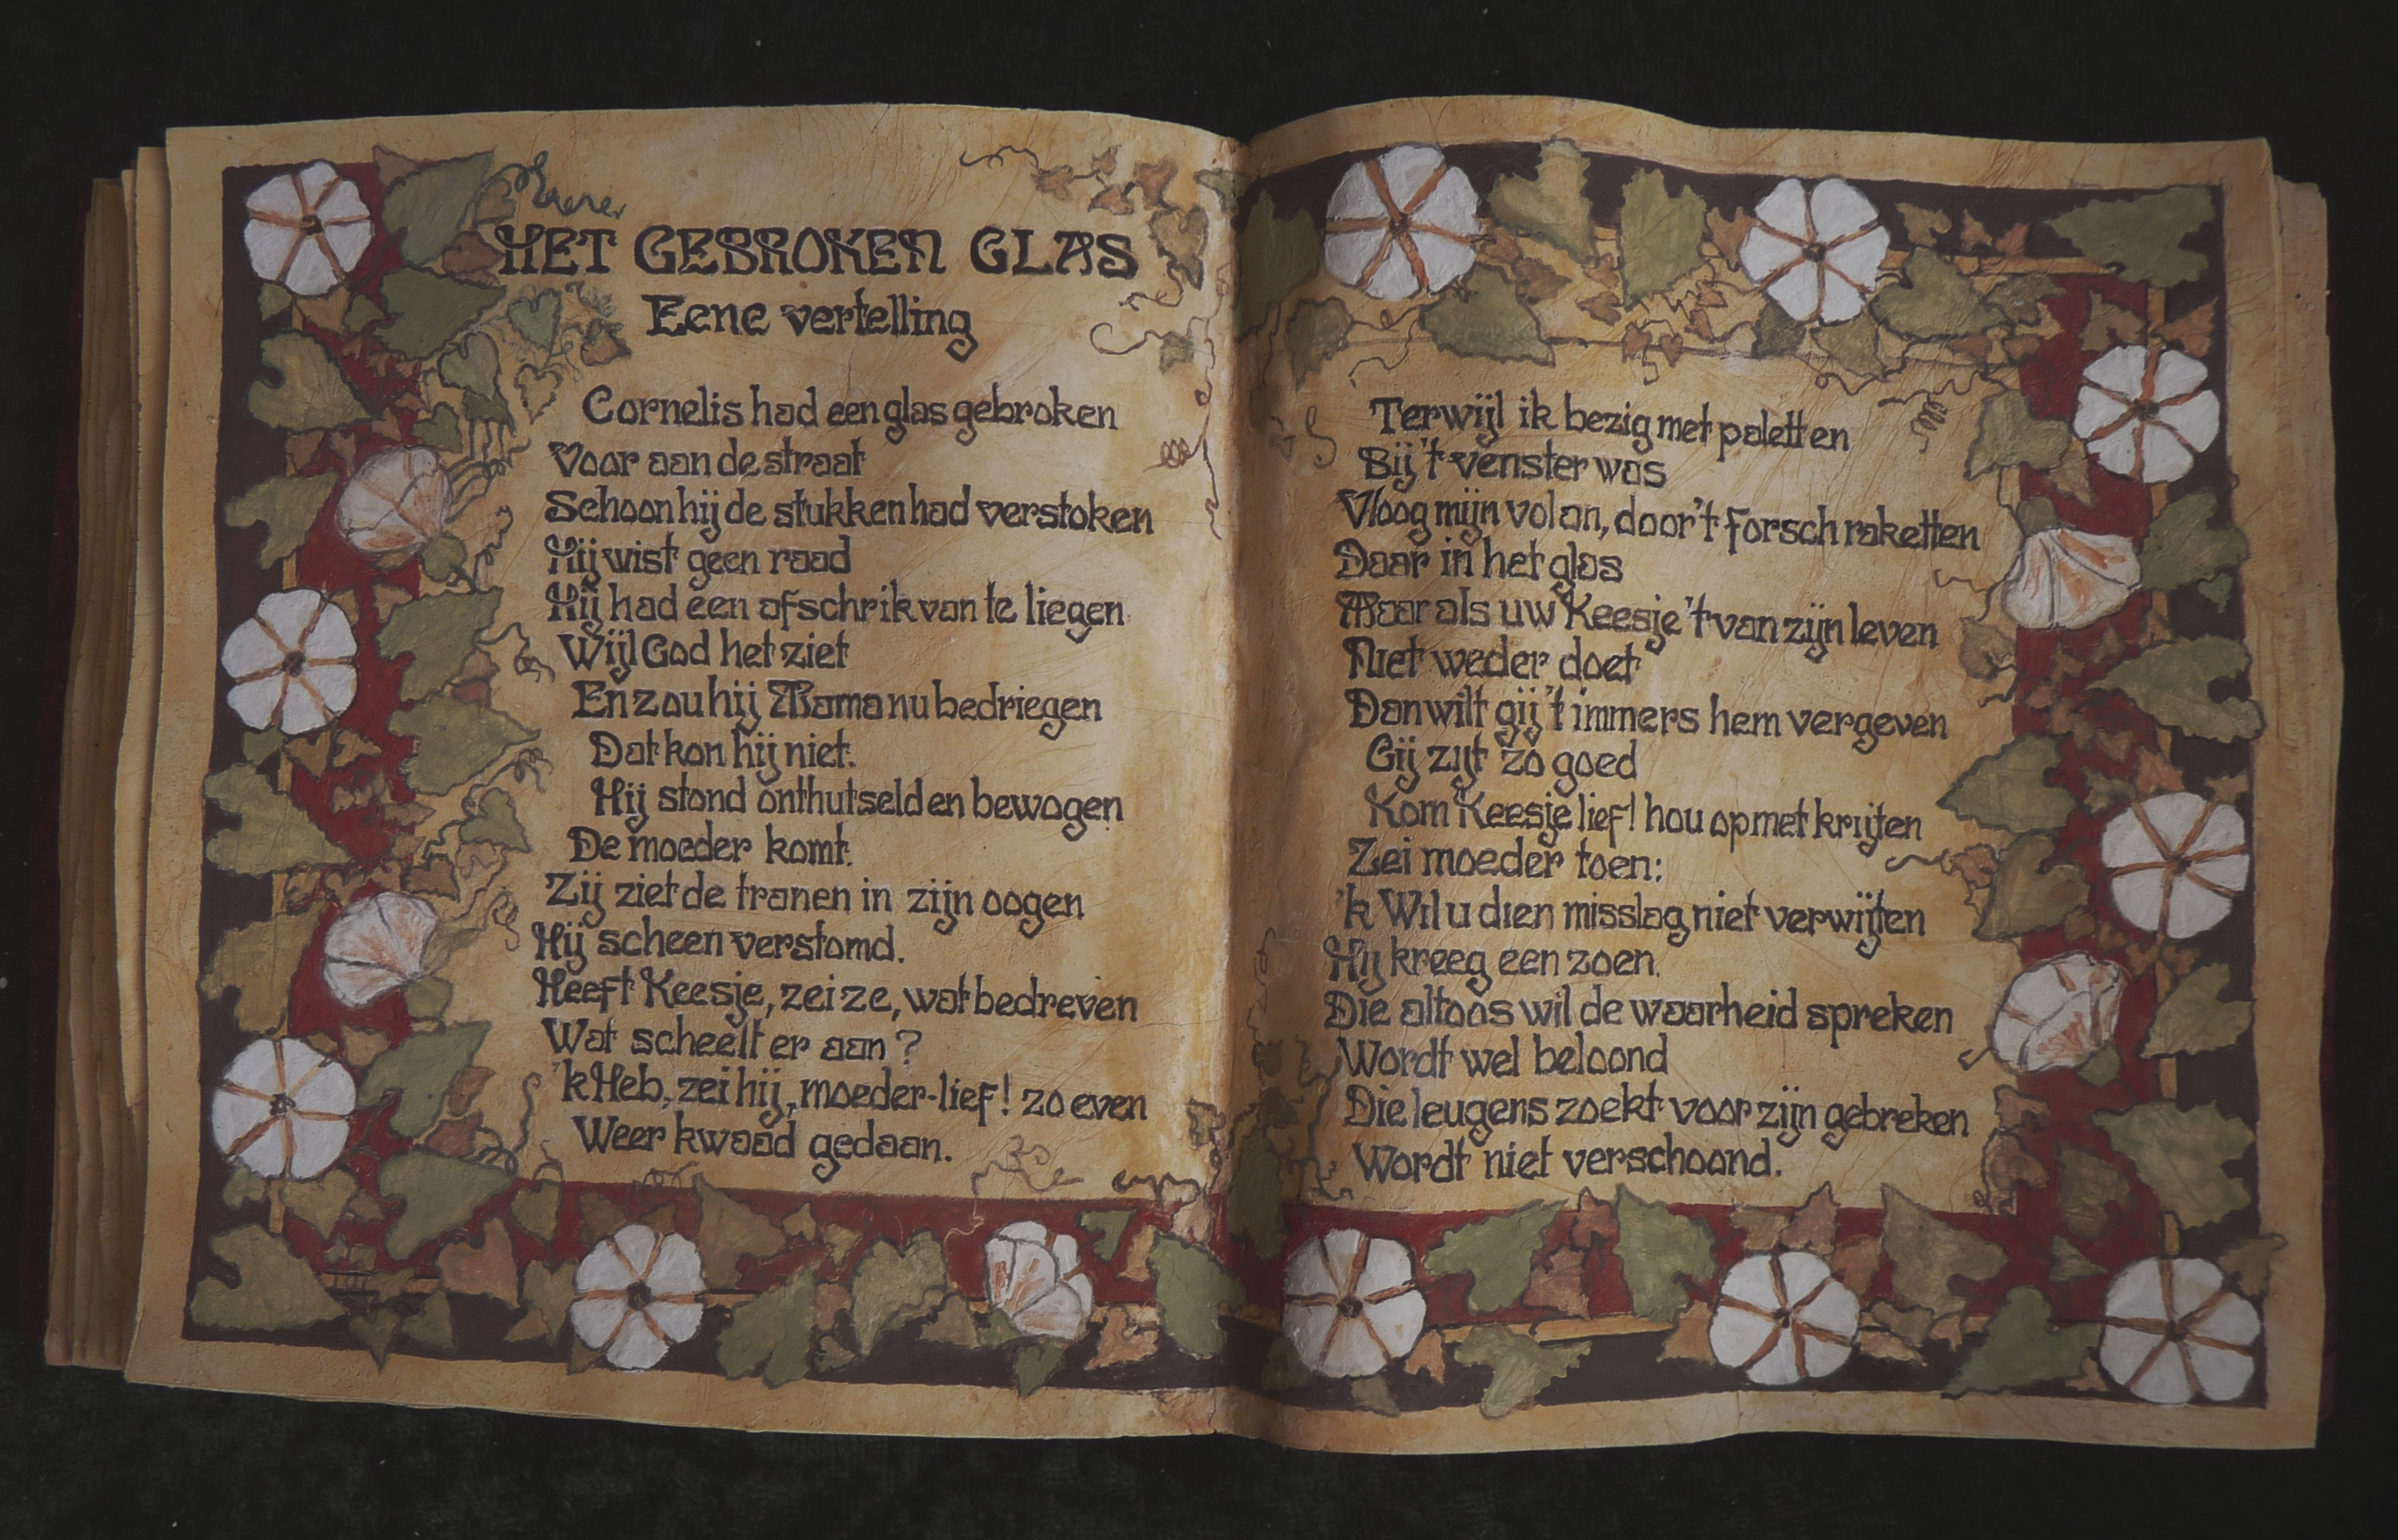 HET GEBROKEN GLAS
Eene vertelling
Cornelis had een glas gebroken
Voor aan de straat
Schoon hij de stukken had verstoken
Hij wist geen raad
Hij had een afschrik van te liegen
Wijl God het ziet
En zou hij Mama nu bedriegen
Dat kon hij niet.
Hij stond onthutseld en bewogen
De moeder komt.
Zij ziet de tranen in zijn oogen
Hij scheen verstomd.
Heeft Keesje, zei ze, wat bedreven
Wat scheelt er aan?
'k Heb, zei hij, moeder-lief! zo even
Weer kwaad gedaan.
Terwijl ik bezig met paletten
Bij 't venster was
Vloog mijn volan, door 't forsch raketten
Daar in het glas
Maar als uw Keesje 't van zijn leven
Niet weder doet
Dan wilt gij 't immers hem vergeven
Gij zijt zo goed
Kom Keesje lief! hou op met krijten
Zei moeder toen:
'k Wil u dien misslag niet verwijten
Hij kreeg een zoen.
Die altoos wil de waarheid spreken
Wordt wel beloond
Die leugens zoekt voor zijn gebreken
Wordt niet verschoond.